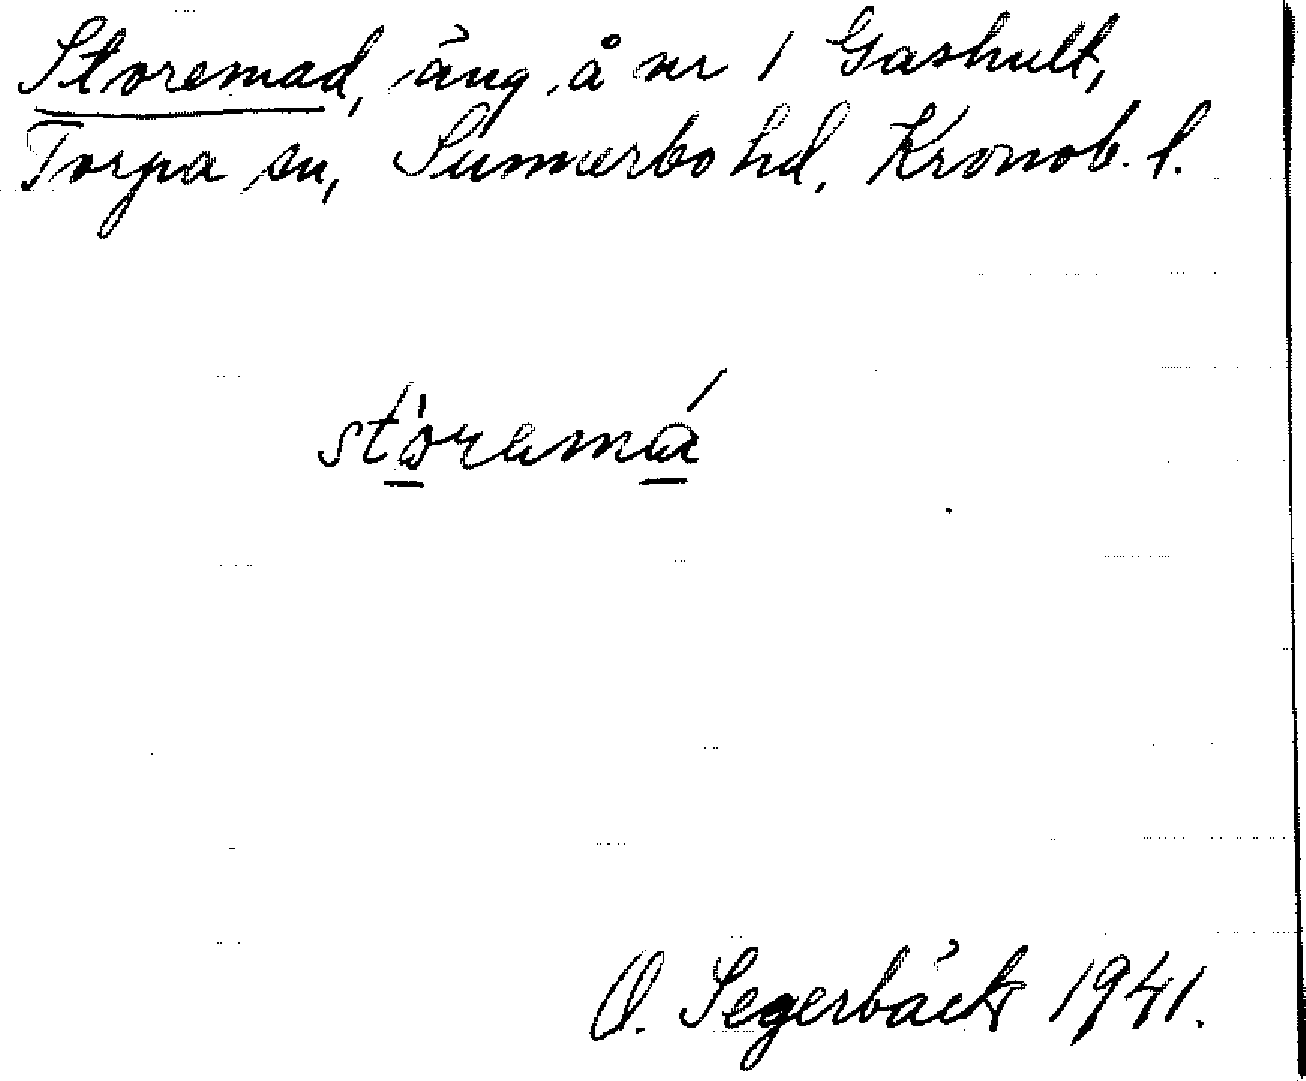 Storemad, äng å nr 1 Gashult,
Torpa sn, Sunnerbo hd, Kronob. l.
stòremá
O. Segerbäck 1941.